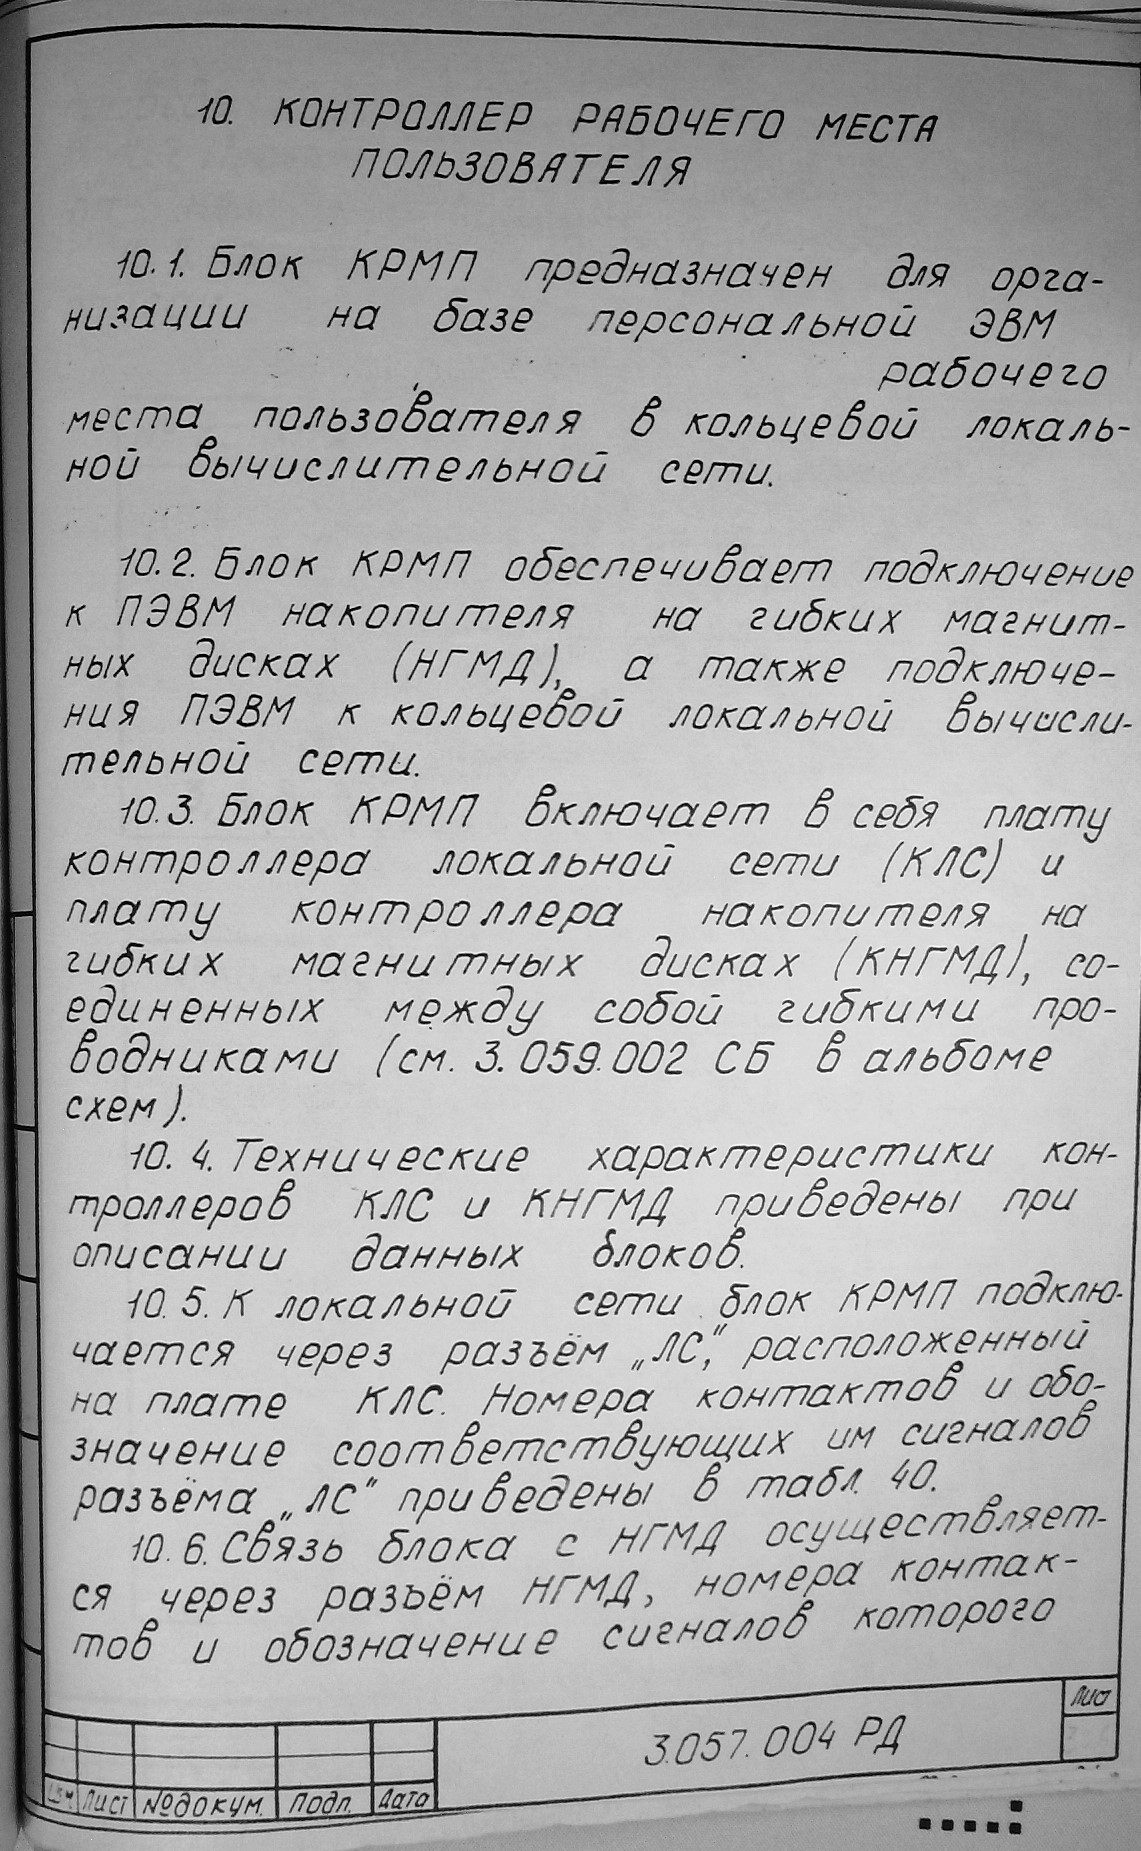 10. КОНТРОЛЛЕР РАБОЧЕГО МЕСТА
ПОЛЬЗОВАТЕЛЯ
10.1. Блок КРМП предназначен для орга-
низации на базе персональной ЭВМ
рабочего
места пользователя в кольцевой локаль-
ной вычислительной сети.
10.2. Блок КРМП обеспечивает подключение
к ПЭВМ накопителя на гибких магнит-
ных дисках (НГМД), а также подключе-
ния ПЭВМ к кольцевой локальной вычисли-
тельной сети.
10.3. Блок КРМП включает в себя плату
контроллера локальной сети (КЛС) и
плату контроллера накопителя на
гибких магнитных дисках (КНГМД), со-
единенных между собой гибкими про-
водниками (см. 3.059.002 СБ в альбоме
схем).
10.4. Технические характеристики кон-
троллеров КЛС и КНГМД приведены при
описании данных блоков.
10.5. К локальной сети блок КРМП подклю-
чается через разъём „ЛС“, расположенный
на плате КЛС. Номера контактов и обо-
значение соответствующих им сигналов
разъёма „ЛС“ приведены в табл. 40.
10.6. Связь блока с НГМД осуществляет-
ся через разъём НГМД, номера контак-
тов и обозначение сигналов которого
3.057.004 РД
Лист
Изм. Лист № докум. Подп. Дата